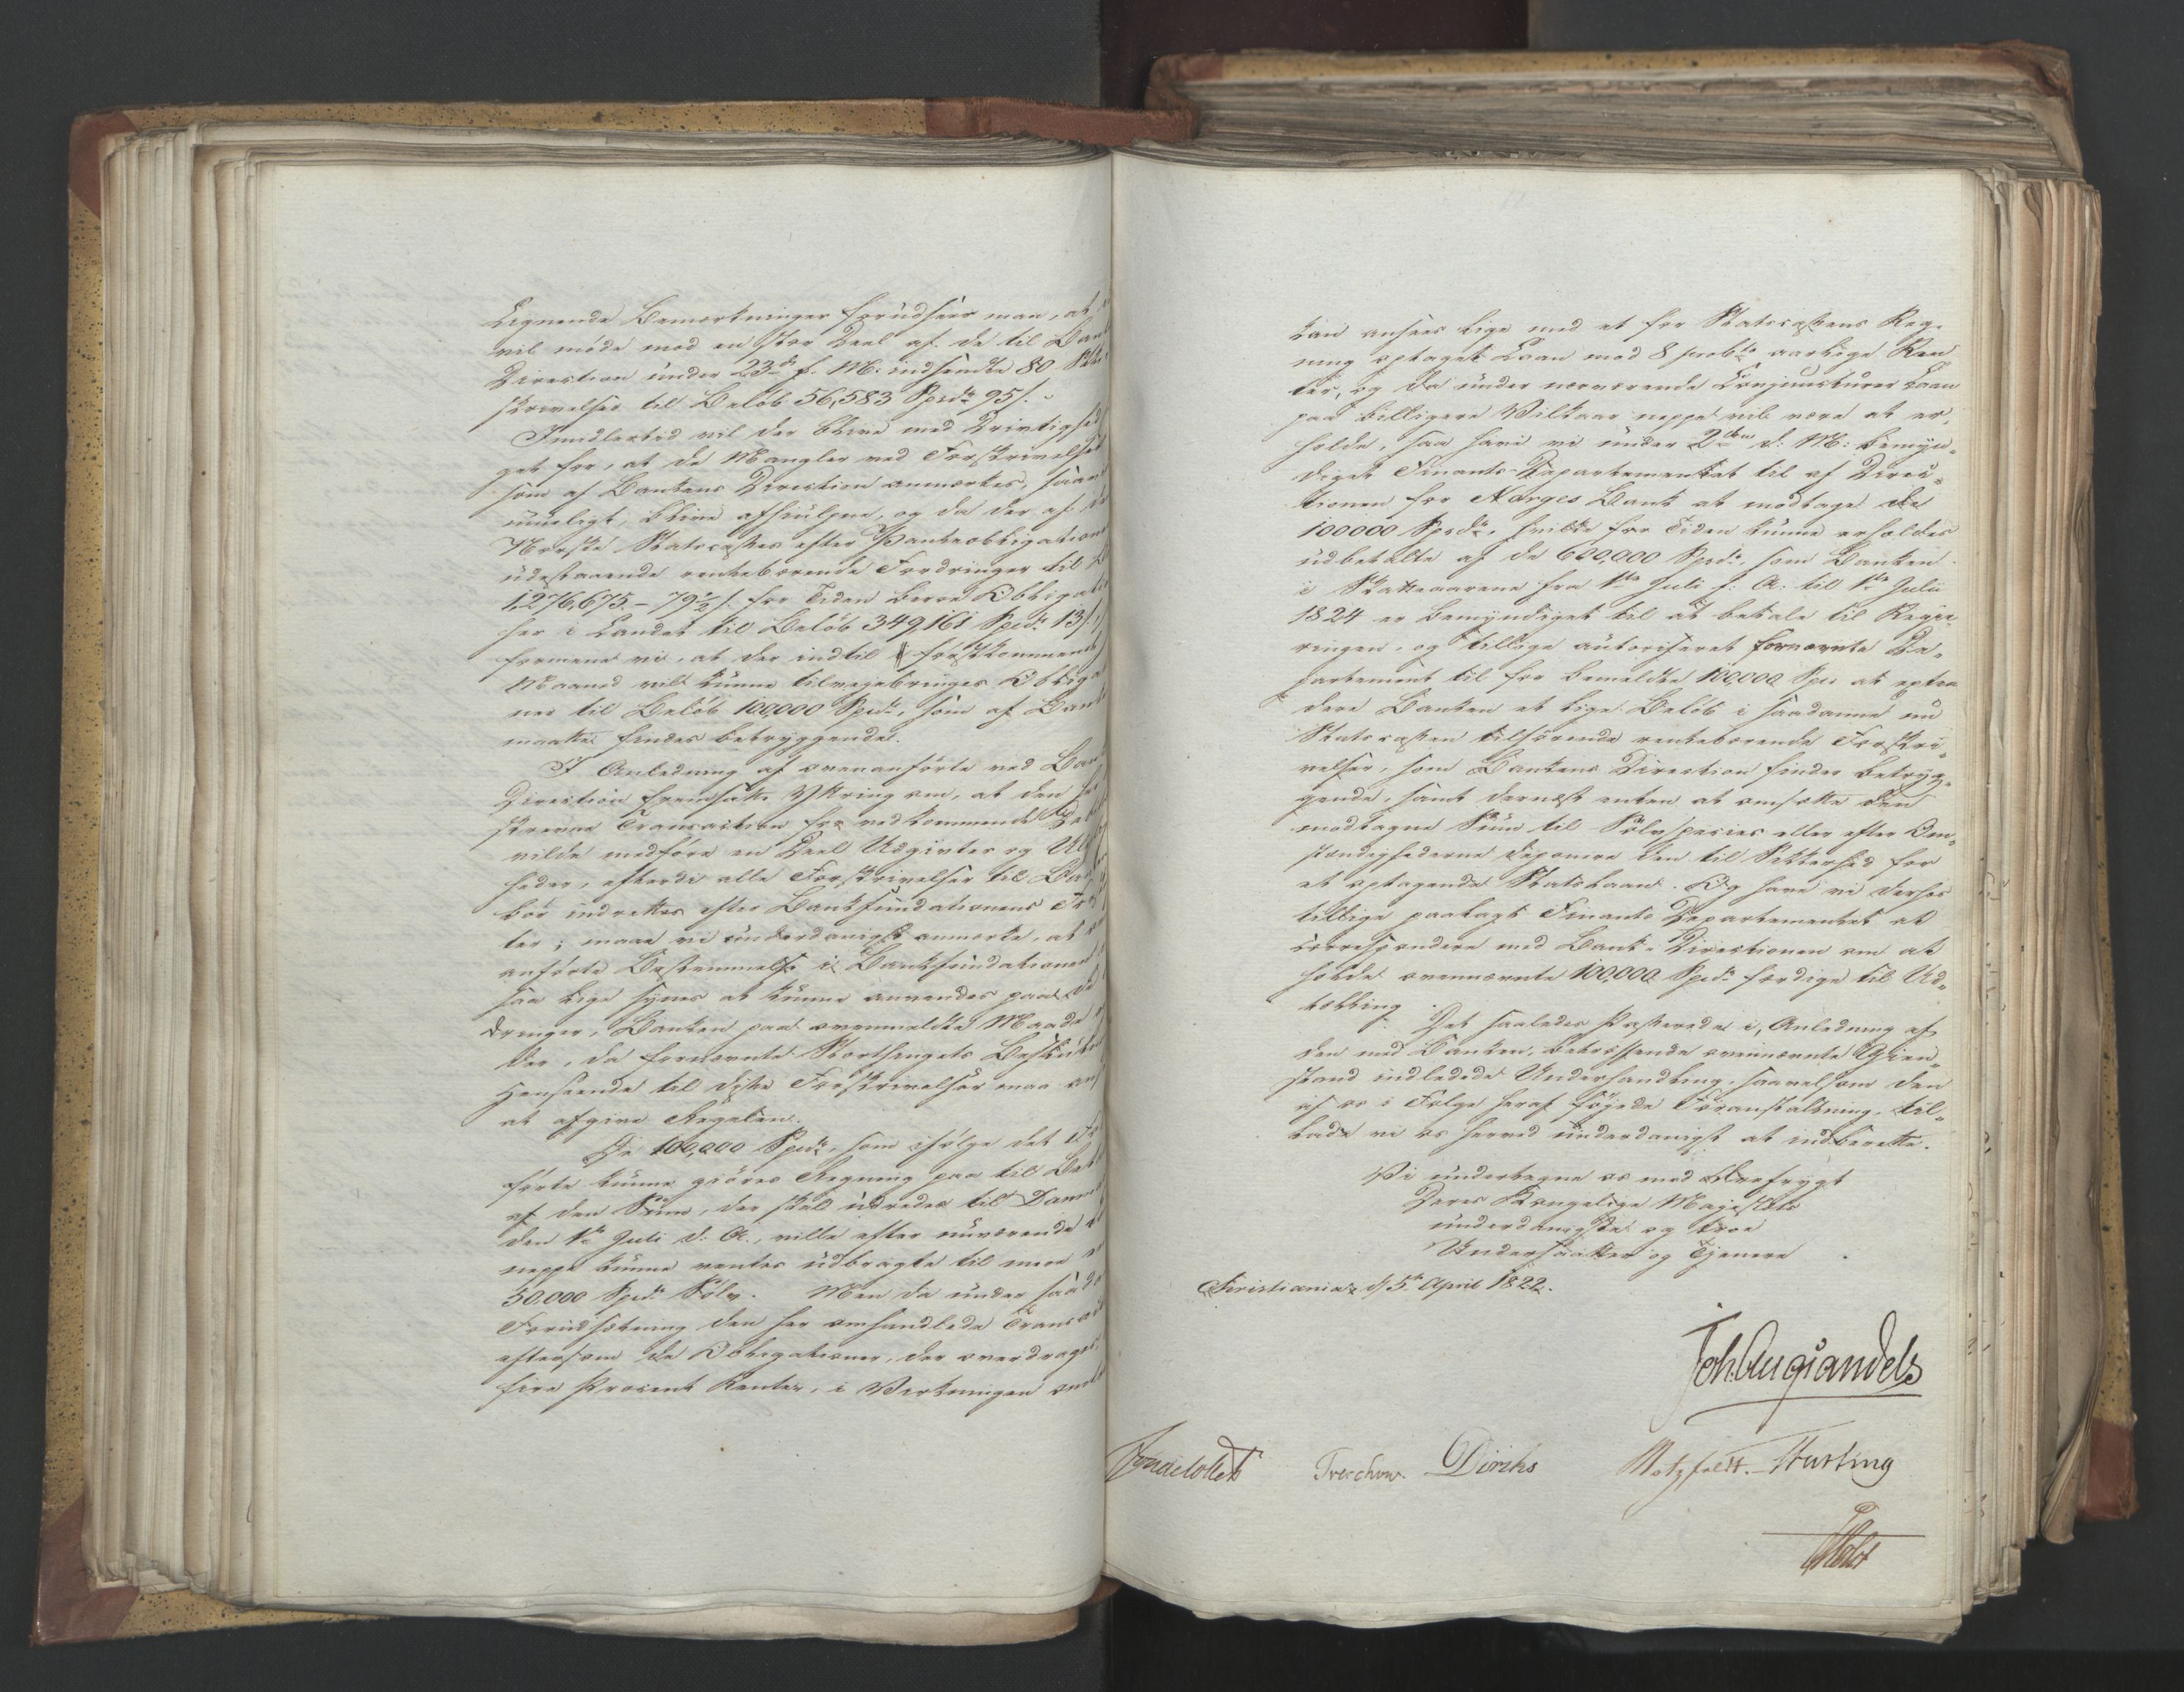 Lignende Bemærkninger forudsees man, at
vil møde mod en stor Deel af de til Bank
Direction under 23de f. M. indsendte 80 Stkr
skrivelser til Beløb 56,583 Spdr 95 s.
Imidlertid vil der blive med Drivtighed
get for, at de Mangler ved Forskrivelser
som af Bankens Direction anmærkes, saavidt
mueligt, blive afhiulpne, og da der af
Norske Statscasses efter Panteobligationer
udestaaende rentebærende Fordringer til
1,276,675.- 79½ s. for Tiden beroe Obligati
her i Landet til Beløb 349,161 Spdr 13 s.
formene vi, at der indtil førstkommende
Maaned vil kunne tilvejebringes Obliga
ner til Beløb 100,000 Spdr, som af Bank
maatte findes betryggende.
I Anledning af ovenanførte ved Bank
Direction fremsatte Yttring om, at den
skrevne Transaction for vedkommende
vilde medføre en Deel Udgivter og
heder, efterdi alle Forskrivelser til Ban
bør indrettes efter Bankfundationens
ter; maae vi underdanigst anmærke, at
anførte Bestemmelse i Bankfundationen
saa lige synes at kunne anvendes paa de
dringer, Banken paa ovenmeldte Maade
der, da fornævnte Storthingets Beslutn
Henseende til disse Forskrivelser maa ans
at afgive Regelen.
De 100,000 Spdr, som ifølge det
førte kunne giøres Regning paa til
af den Sum, der skal udredes til Danm
den 1ste Juli d. A., ville efter nuværende
neppe kunne ventes udbragte til mere
50.000 Spdr Sølv. Men da under saad
Forudsætning den her omhandlede Transact
eftersom de Obligationer, der overdrages,
fire Procent Renter, i Virkningen
kan ansees lige med et for Statscassens Reg-
ning optaget Laan mod 8 procto aarlige Ren
ter, og da under nærværende Conjuncturer Laan
paa billigere Vilkaar neppe vil være at er-
holde, saa have vi under 2den d. M. bemyn-
diget Finants-Departementet til af Direc-
tionen for Norges Bank at modtage de
100000 Spdr, hvilke for Tiden kunne erholdes
udbetalte af de 600,000 Spdr, som Banken
i Skatteaarene fra 1ste Juli f. A. til 1ste Julii
1824 er bemyndiget til at betale til Regie-
ringen, og tillige autoriseret fornævnte De-
partement til for bemeldte 100,000 Spdr at extra
dere Banken et lige Beløb i saadanne nu
Statscassen tilhørende rentebærende Forskri
velser, som Bankens Direction finder betryg-
gende, samt dernæst enten at omsætte den
modtagne Sum til Sølvspecies eller efter Om-
stændighederne deponere den til Sikkerhed for
et optagende Statslaan. Og have vi derhos
tillige paalagt Finants Departementet at
correspondere med Bank-Directionen om at
holde ovennævnte 100,000 Spdr færdige til Ud-
tælling.
Det saaledes Passerede i Anledning af
den med Banken, betræffende ovennævnte Gien-
stand indledede Underhandling, saavelsom den
af os i Følge heraf føiede Foranstaltning, til-
lade vi os herved underdanigst at indberette.
Vi undertegne os med Ærefrygt
Deres Kongelige Majestæts
underdanigste og troe
Undersaatter og Tjenere
Christiania d 5te April 1822.
Joh. Aug Sandels
Sommerhielm
Treschow. Diriks Motzfeldt. Fasting
Holst